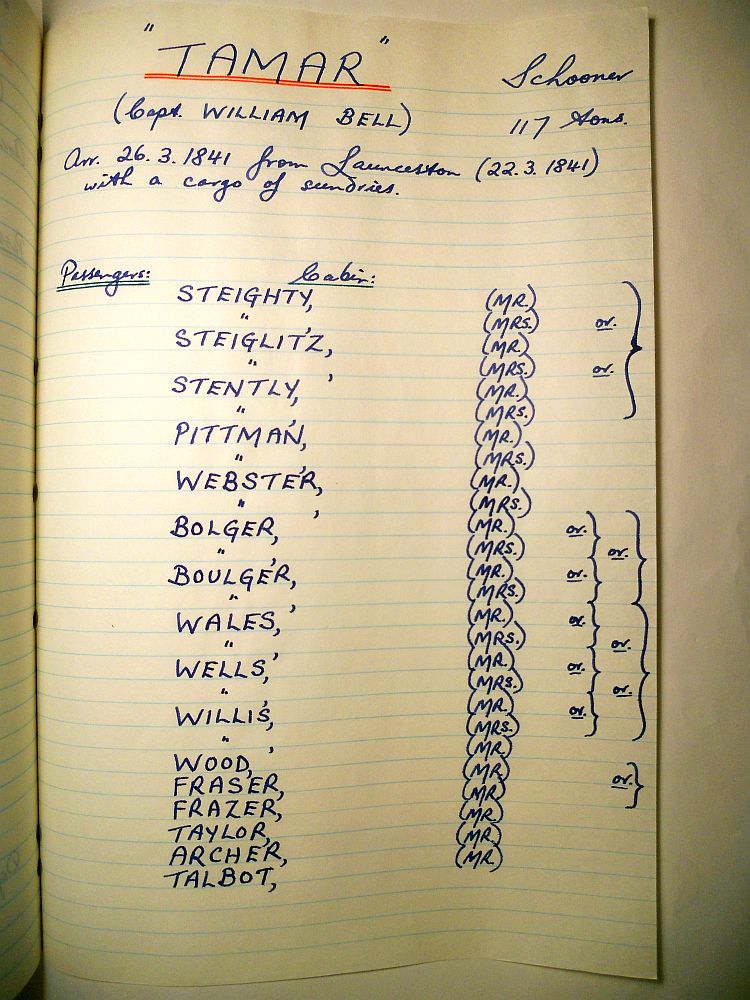 "TAMAR" Schooner
(Capt. WILLIAM BELL) 117 tons.
Arr. 26.3.1841 from Launceston (22.3.1841)
with a cargo of sundries.
Passengers: Cabin:
STEIGHTY, (MR.)
" , (MRS.) or.
STEIGLITZ, (MR.)
" , (MRS.) or.
STENTLY, (MR.)
" , (MRS.)
PITTMAN, (MR.)
" , (MRS.)
WEBSTER, (MR.)
" , (MRS.)
BOLGER, (MR.) or.
" , (MRS.) or.
BOULGER, (MR.) or.
" , (MRS.)
WALES, (MR.) or.
" , (MRS.) or.
WELLS, (MR.) or.
" , (MRS.) or.
WILLIS, (MR.) or.
" , (MRS.)
WOOD, (MR.)
FRASER, (MR.) or.
FRAZER, (MR)
TAYLOR, (MR.)
ARCHER, (MR.)
TALBOT, (MR.)